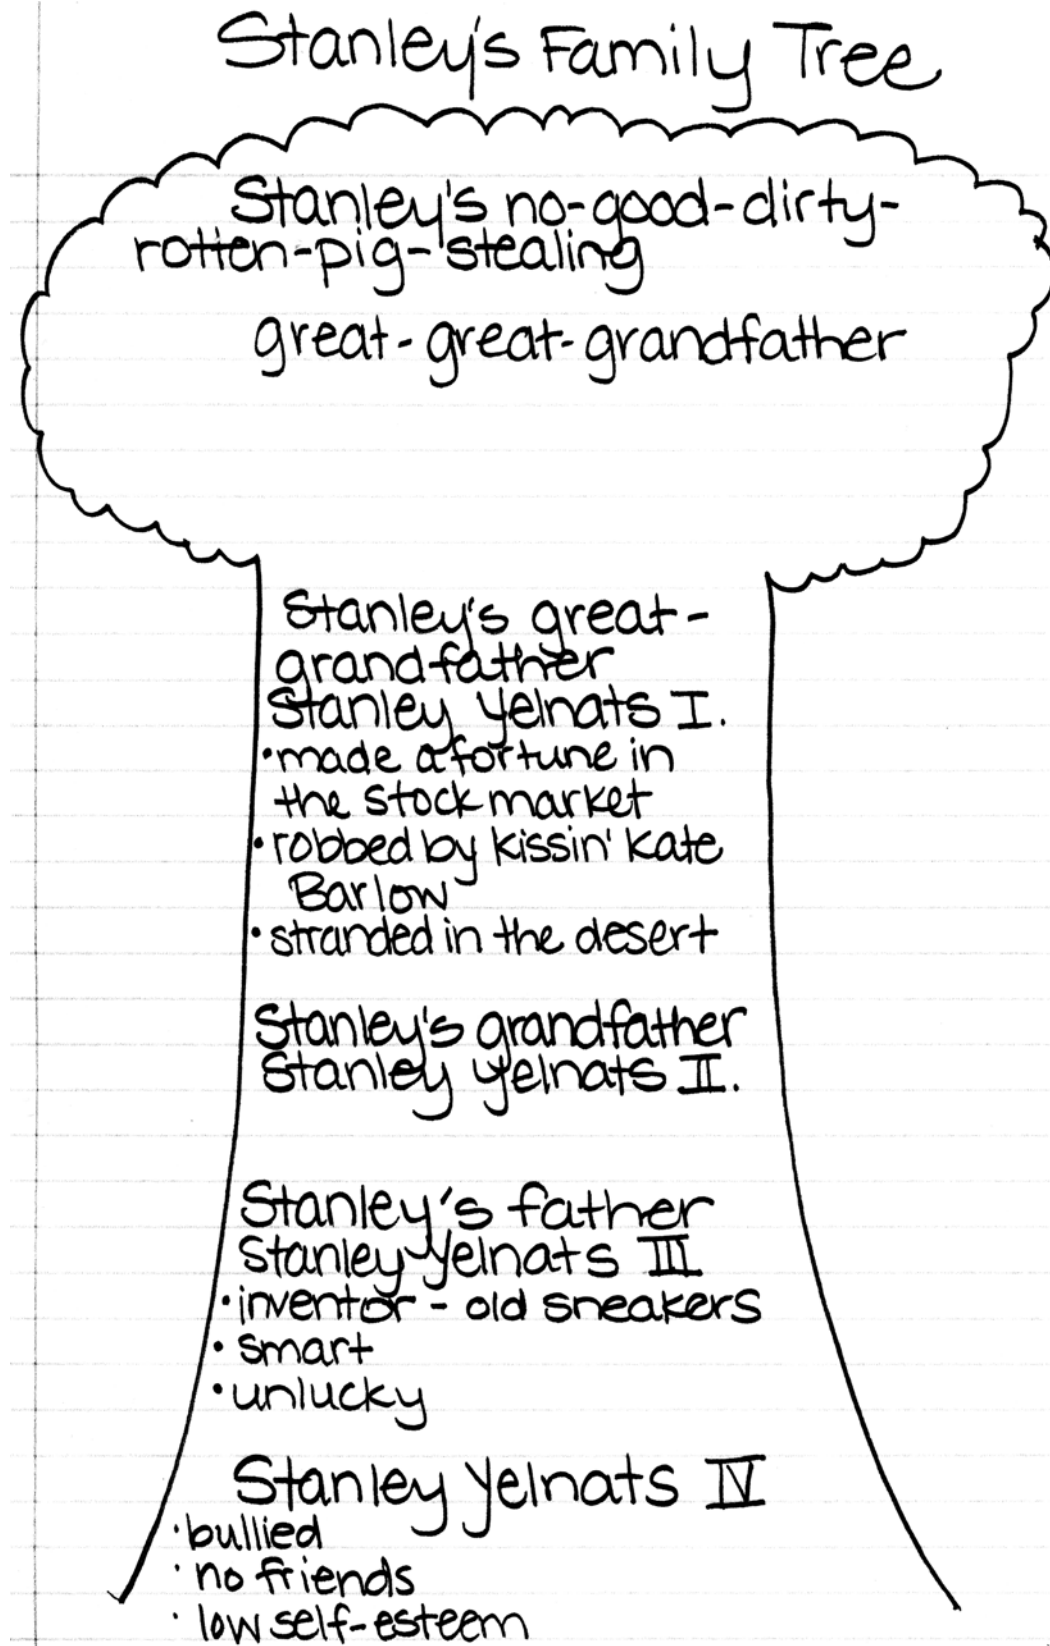 Stanley's Family Tree
Stanley's no-good-dirty-
rotten-pig-stealing
great-great-grandfather
Stanley's great-
grandfather
Stanley Yelnats I.
•made a fortune in
the stock market
•robbed by Kissin' Kate
Barlow
•stranded in the desert
Stanley's grandfather
Stanley Yelnats II.
Stanley's father
Stanley Yelnats III
•inventor - old sneakers
•smart
•unlucky
Stanley Yelnats IV
•bullied
•no friends
•low self-esteem